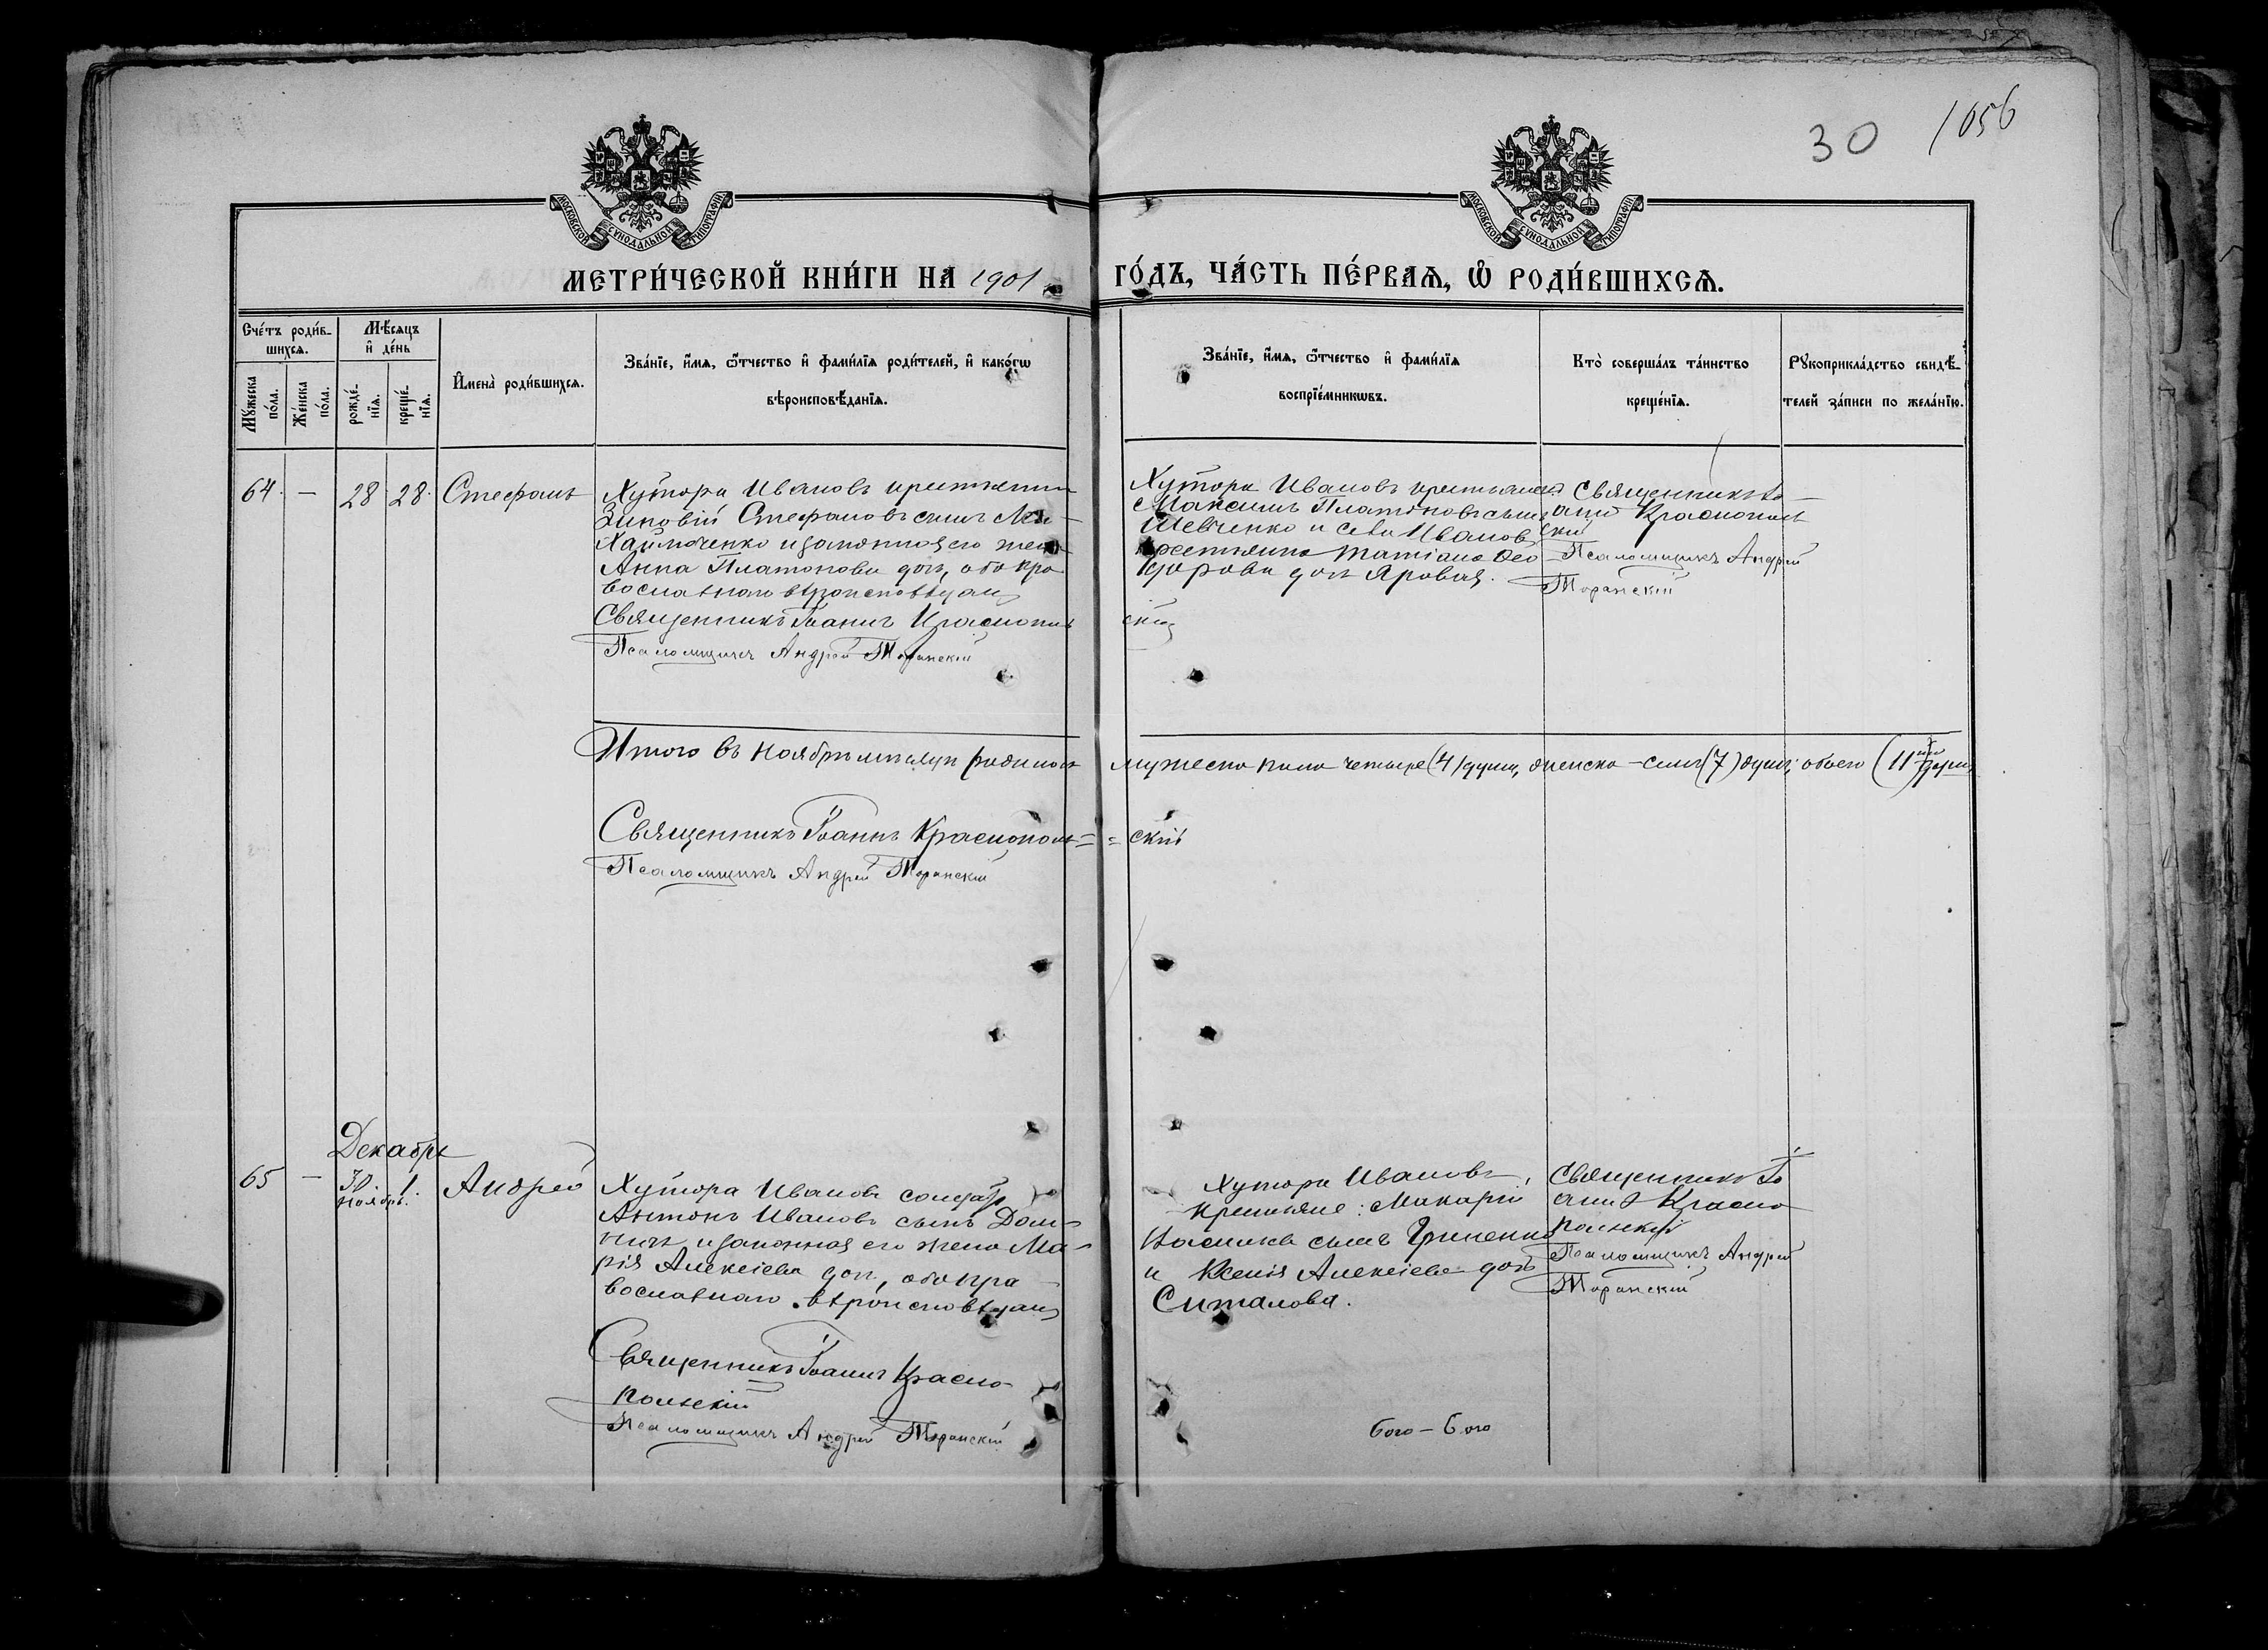 30 1056
МОСКОВСКОЙ СѴНОДАЛЬНОЙ ТИПОГРАФІИ
МОСКОВСКОЙ СѴНОДАЛЬНОЙ ТИПОГРАФІИ
МЕТРИ́ЧЕСКОЙ КНИ́ГИ НА 1901
ГО́ДЪ, ЧА́СТЬ ПЕ́РВАѦ, Ѡ҆ РОДИ́ВШИХСѦ.
Счéтъ роди́в-
шихсѧ.
Мꙋ́жеска
по́ла.
Же́нска
по́ла.
Мѣ́сѧцъ
и҆ де́нь
рожде́-
нїѧ.
креще́-
нїѧ.
И҆мена̀ роди́вшихсѧ.
Зва́нїе, и҆́мѧ, ѻ҆́тчество и҆ фами́лїѧ роди́телей, и҆ како́гѡ
вѣроисповѣ́данїѧ.
Зва́нїе, и҆́мѧ, ѻ҆́тчество и҆ фами́лїѧ
воспрїе́мникѡвъ.
Кто̀ соверша́лъ та́инство
креще́нїѧ.
Рꙋкоприкла́дство свидѣ́-
телей за́писи по жела́нїю.
64. — 28 28. Стефанъ
Хутора Иванов
Зиновій Стефановъ сынъ Ми-
хайличенко и законная его жена
Анна Платонова доч., оба пра-
вославнаго вѣроисповѣдан
Священникъ Іоаннъ Краснополь
скій
Псаломщикъ Андрей
Хутора Иванов
Максимъ Платоновъ сынъ
Шевченко и Иванов
Ѳео
дорова доч Яровая.
Священникъ Іо-
аннъ Краснополь
скій
Псаломщикъ Андрей
Итого въ Ноябрѣ мѣсяцѣ родилось мужеска пола четыре (4) души, женска – семь (7) душъ; обоего (11)
Священникъ Іоаннъ Краснополь= =скій
Псаломщикъ Андрей
Декабрь
65 — 30 Ноября. 1. Андрей
Хутора Иванов солдатъ
Антонъ Ивановъ сынъ
и законная его жена Ма-
рія Алексіева доч., оба пра-
вославнаго вѣроисповѣдан
Священникъ Іоаннъ Красно-
польскій
Псаломщикъ Андрей
Хутора Иванов
крестьяне: Макарій
сынъ Гриненко
и Ксенія Алексіева доч
Ситалова.
Священникъ Іо
аннъ Красно
польскій
Псаломщикъ Андрей